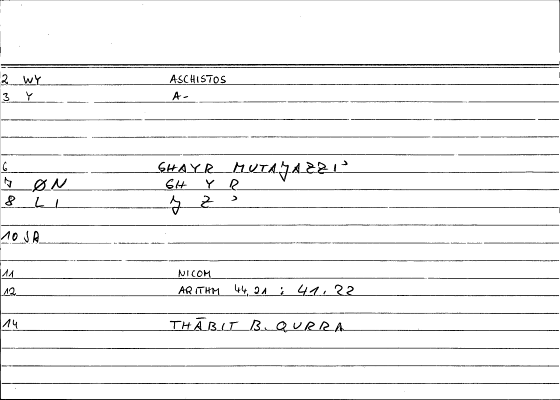 2 WY ASCHISTOS
3 Y A-
6 GHAYR MUTAJAZZI'
7 ØN GH Y R
8 LI J Z '
10 JA
11 NICOM
12 ARITHM 44,21 : 41.22
14 THĀBIT B. QURRA